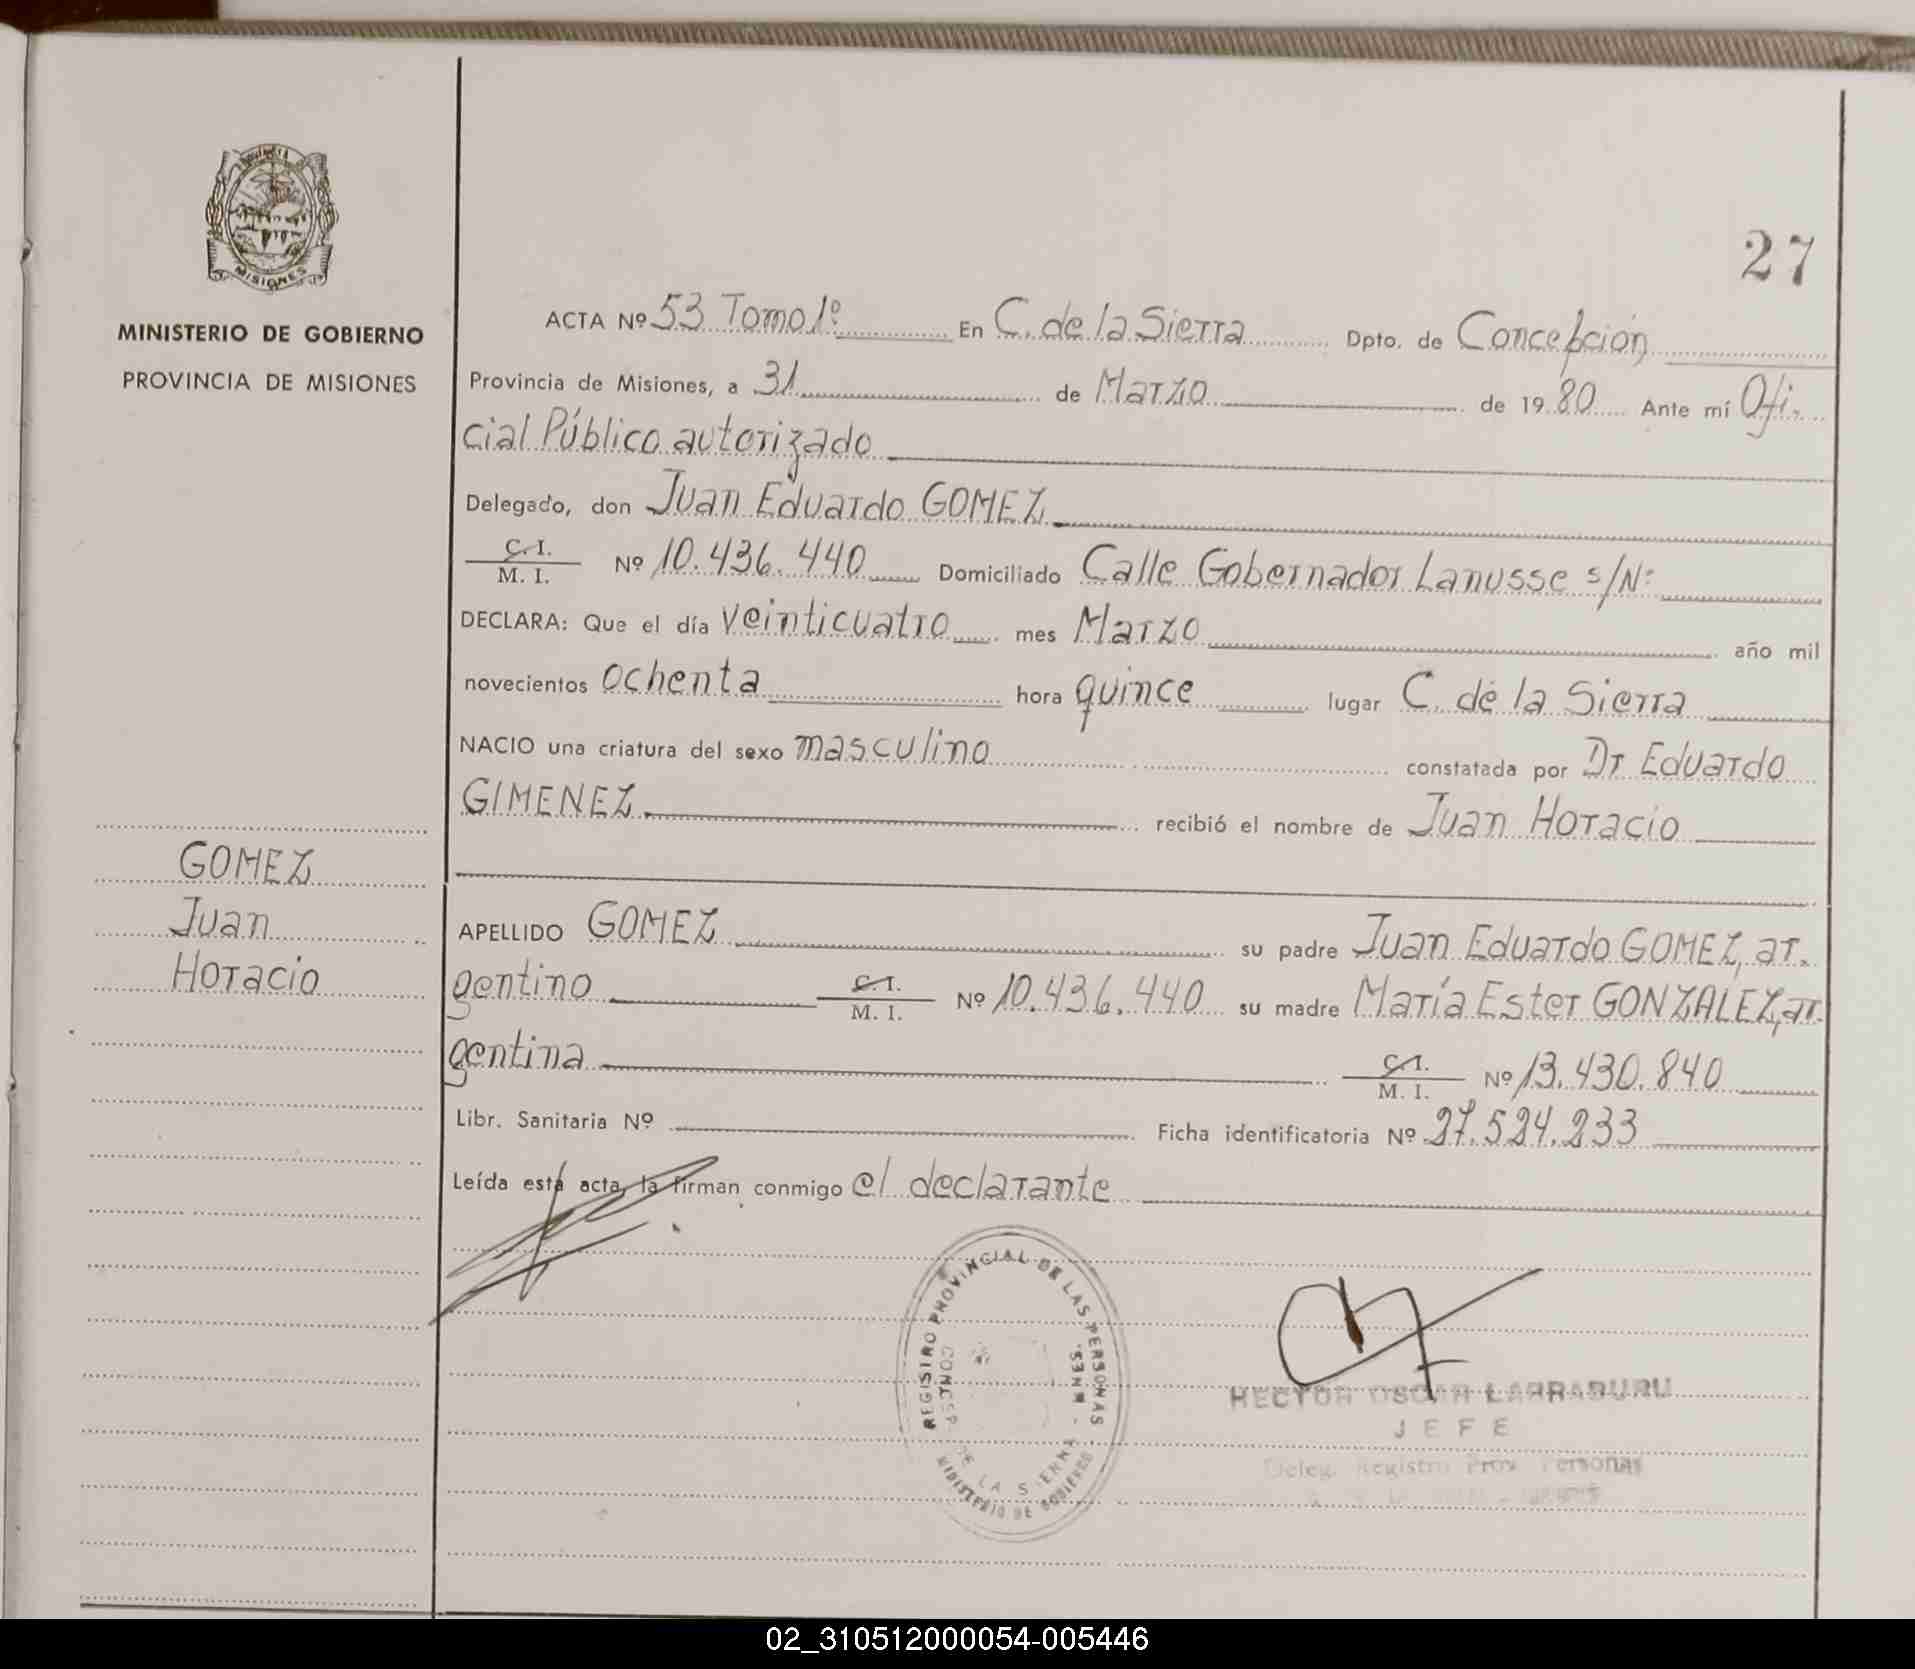 PROVINCIA
MISIONES
MINISTERIO DE GOBIERNO
PROVINCIA DE MISIONES
27
ACTA Nº 53 Tomo 1º En C. de la Sierra Dpto. de Concepción
Provincia de Misiones, a 31 de Marzo de 1980 Ante mí Ofi-
cial Público autorizado
Delegado, don Juan Eduardo GOMEZ
C. I.
M. I. Nº 10.436.440 Domiciliado Calle Gobernador Lanusse s/Nº
DECLARA: Que el día veinticuatro mes Marzo año mil
novecientos ochenta hora quince lugar C. de la Sierra
NACIO una criatura del sexo masculino constatada por Dr Eduardo
GIMENEZ recibió el nombre de Juan Horacio
GOMEZ
Juan
Horacio
APELLIDO GOMEZ su padre Juan Eduardo GOMEZ, ar-
gentino C. I. M. I. Nº 10.436.440 su madre María Ester GONZALEZ, ar-
gentina C. I. M. I. Nº 13.430.840
Libr. Sanitaria Nº Ficha identificatoria Nº 27.524.233
Leída está acta, la firman conmigo el declarante
REGISTRO PROVINCIAL DE LAS PERSONAS
DE LA SIERRA
MINISTERIO DE GOBIERNO
HECTOR OSCAR LARRABURU
JEFE
Deleg. Registro Prov. Personas
02_310512000054-005446